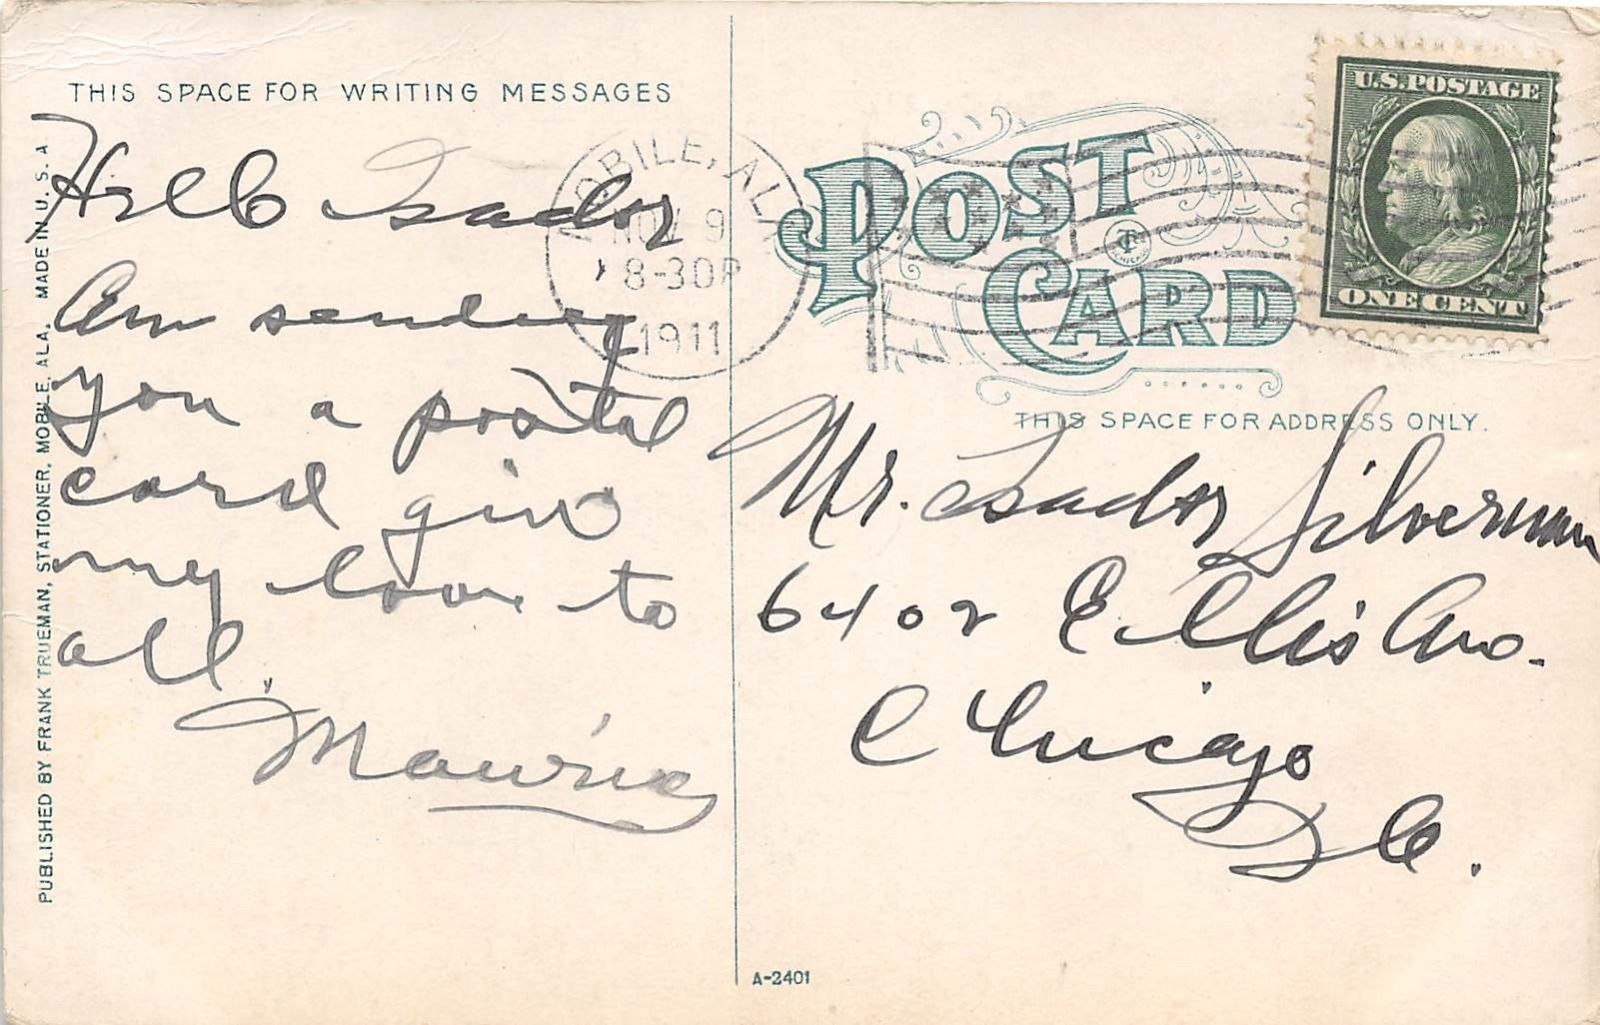 THIS SPACE FOR WRITING MESSAGES
Hello Isador
Am sending
you a postal
card give
my love to
all.
Maurice
PUBLISHED BY FRANK TRUEMAN, STATIONER, MOBILE, ALA. MADE IN U.S.A
MOBILE, ALA.
NOV 9
8-30P
1911
POST
CARD
CHICAGO
U.S. POSTAGE
ONE CENT
THIS SPACE FOR ADDRESS ONLY.
Mr. Isador Silverman
6402 Ellis Ave.
Chicago
Ill.
A-2401